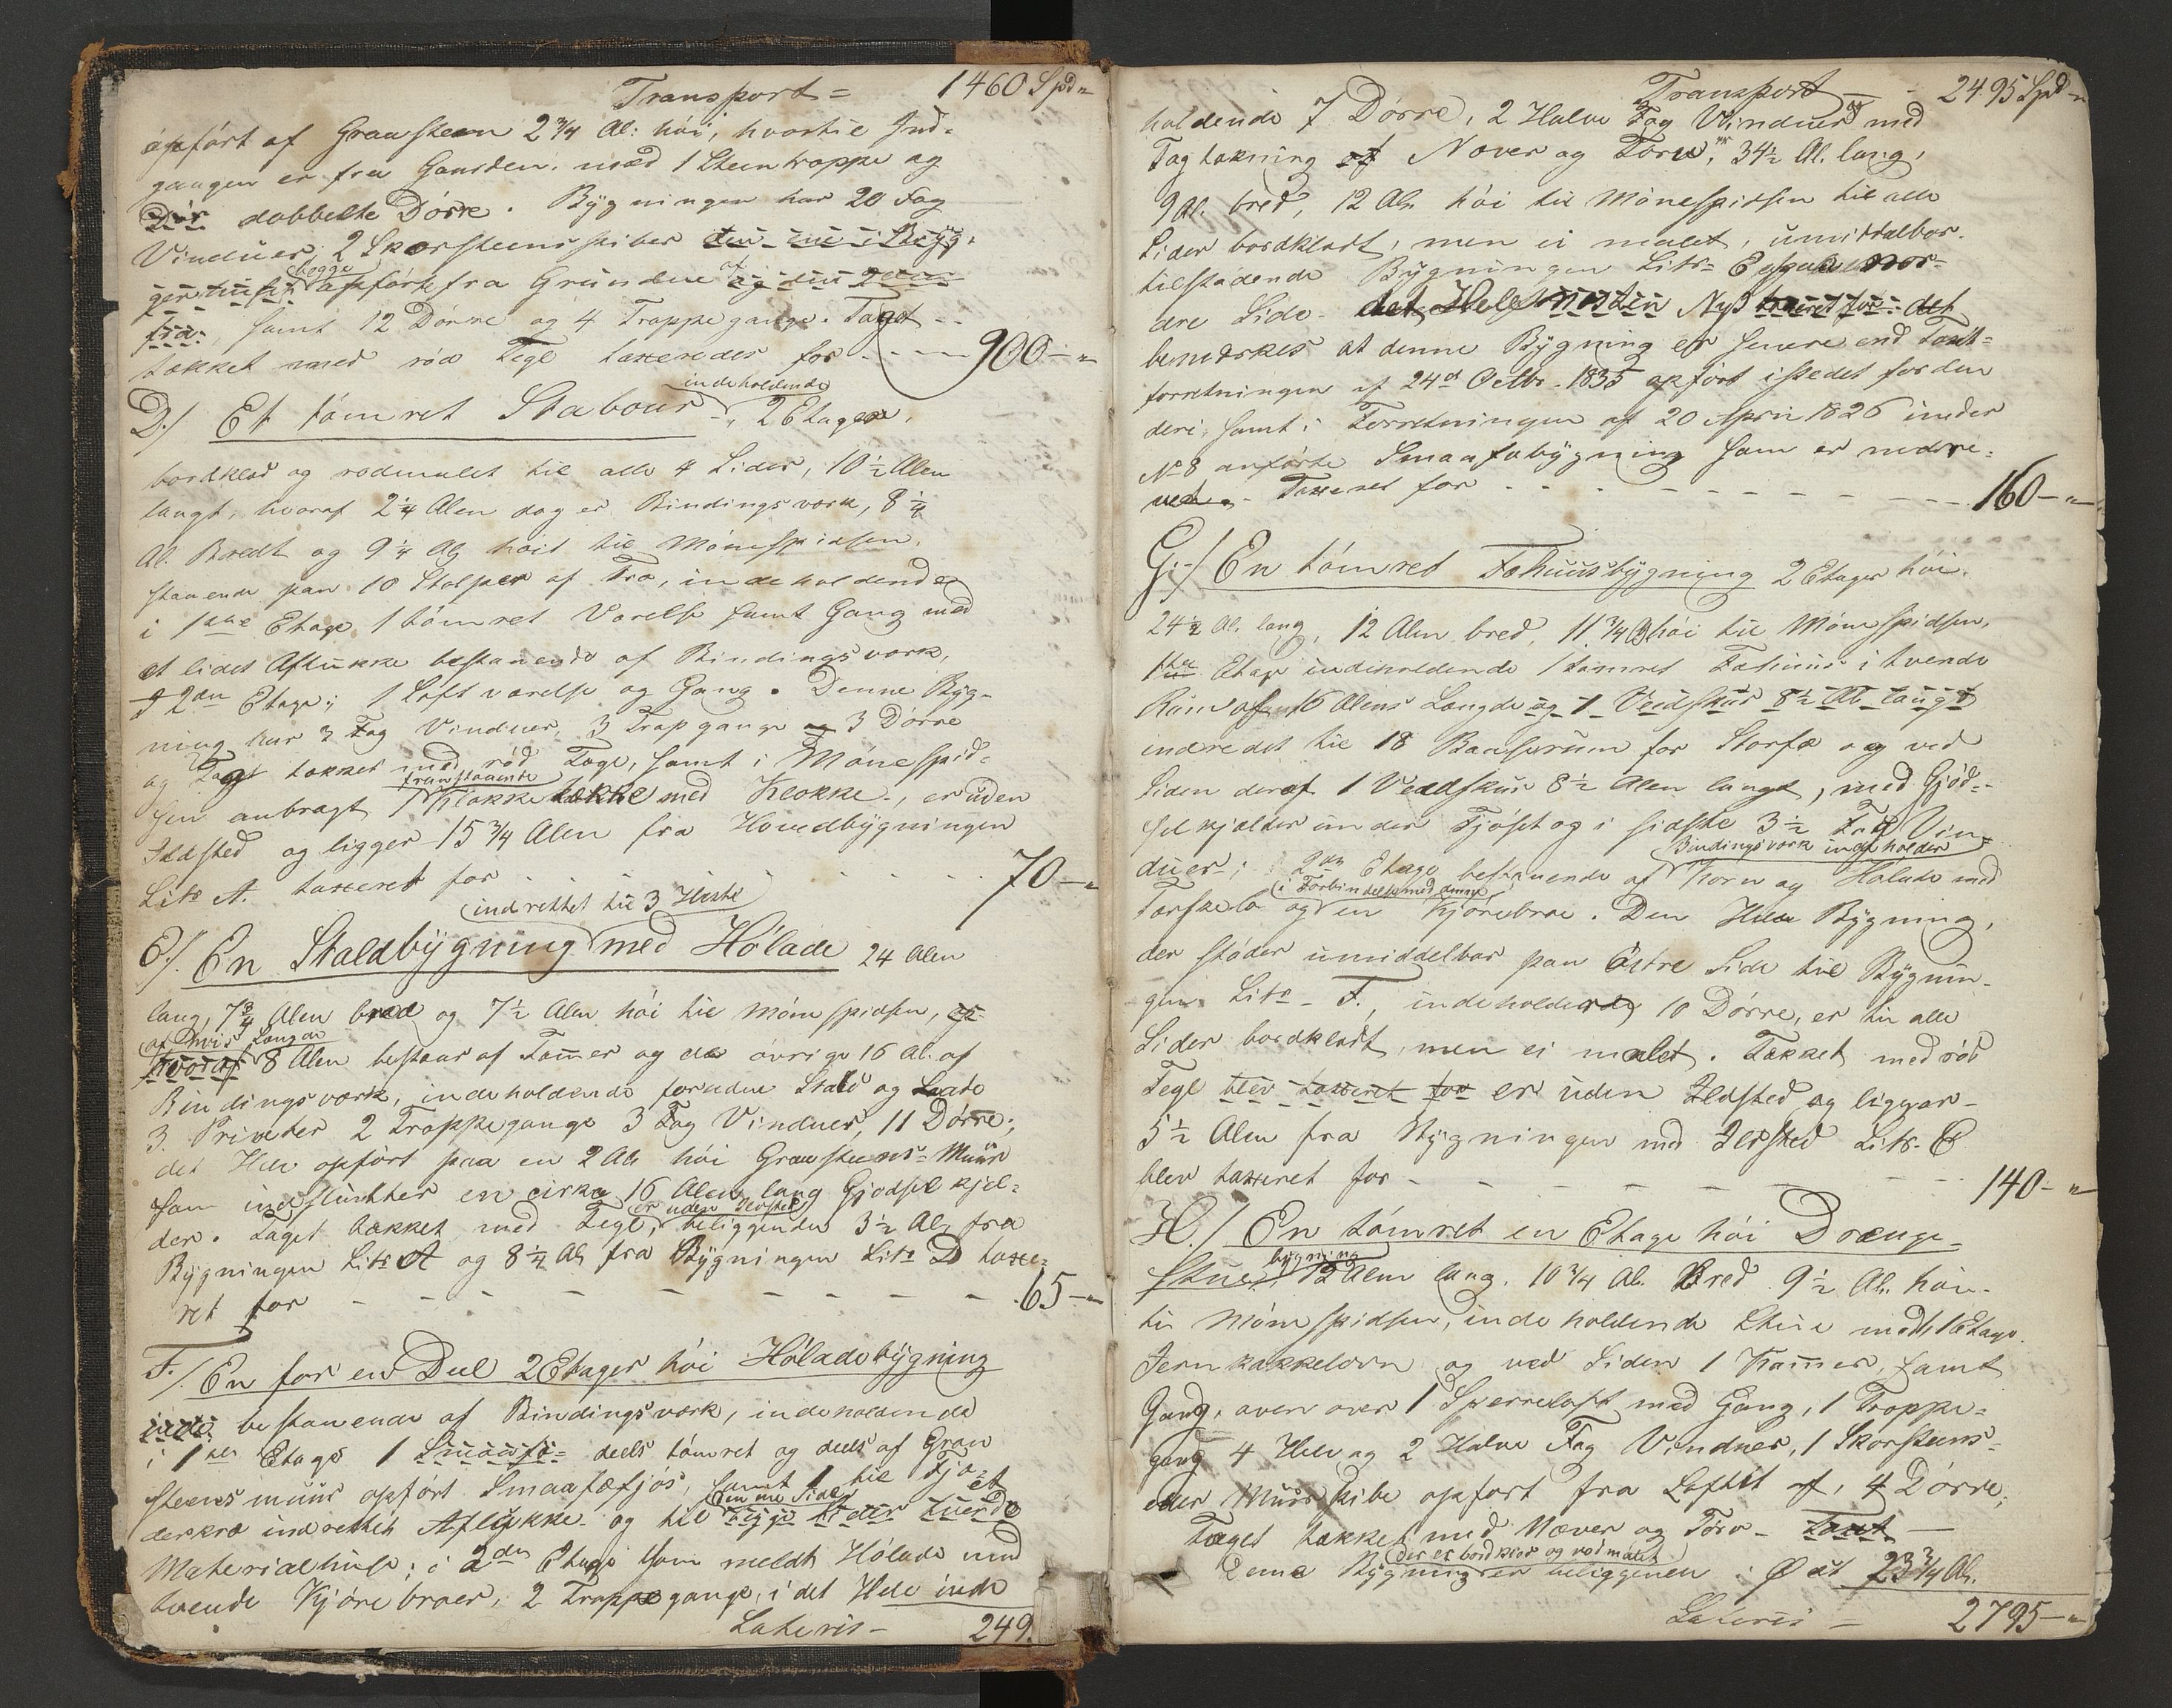 Transport = 1460 Spd "
opført af Graasteen 2 3/4 Al: høi, hvortil Ind-
gangen er fra Gaarden, med 1 Steentrappe og
dobbelte Dørre. Bygningen har 20 Fag
Vinduer 2 Skorsteenspiber den ene i Byg-
begge af
opførte fra Grunden og
fra. samt 12 Dørre og 4 Trappegange. Taget
tækket med rød Tegl taxeredes for - - - 900 - "
indeholdende
D./ Et tømret Stabour 2 Etager,
bordklæd og rødmalet til alle 4 Sider, 10 1/2 Alen
langt, hvoraf 2 1/4 Alen dog er Bindingsværk, 8 1/4
Al. Bredt og 9 1/4 Al. høit til Mønespidsen,
staaende paa 10 Stolper af Træ, indeholdende
i 1ste Etage 1 tømret Værelse samt Gang med
et lidet Aflukke bestaaende af Bindingsværk,
I 2den Etage; 1 Loftværelse og Gang. Denne Byg-
ning har 3 Fag Vinduer, 3 Trapgange og 3 Dørre
og Taget tækket med rød Tage, samt i Mønespid-
franstaaende
sen anbragt 1 Klokke med Klokke, er uden
Ildsted og ligger 15 3/4 Alen fra Hovedbygningen
Litr A. taxeret for - - - 70 - "
indrettet til 3 Heste
E./. En Staldbygning med Hølade 24 Alen
lang, 7 3/4 Alen bred og 7 1/2 Alen høi til Mønespidsen,
af hvis Længde
hvoraf 8 Alen bestaar af Tømer og de øvrige 16 Al. af
Bindingsværk, indeholdende foruden Stald og Lade
3. Priveter 2 Trappegange 3 Fag Vinduer, 11 Dørre;
det Hele opført paa en 2 Al. høi Graasteens-Muur
som indslutter en cirka 16 Alen lang Gjødselkjel-
er uden Ildsted
der. Taget tækket med Tegl, beliggende 3 1/2 Al. fra
Bygningen Litr A og 8 1/4 Al. fra Bygningen Litr D taxe-
ret for - - - 65 - "
F./. En for en Deel 2 Etager høi Høladebygning
inde bestaaende af Bindingsværk, indeholdende
i 1ste Etage 1 Smaafæ- deels tømret og deels af Graa
steensmuur opført Smaafæfjøs, samt 1 til Fjø-
den ene Side et
derkræ indrettet Aflukke og til begge Sider tvende
Materialhuse; i 2den Etage som meldt Hølade med
tvende Kjørebroer, 2 Trappegange, i det Hele inde
Lateris - 249.
Transport - 2495 Spd "
holdende 7 Dørre, 2 Halve Fag Vinduer og med
Tagtækning af Næver og Torv, er 34 1/2 Al. lang,
9 Al. bred, 12 Al. høi til Mønespidsen til alle
Sider bordklædt, men ei malet, umiddelbar-
tilstødende Bygningen Litr E paa Nor-
dre Side. det Hele næsten Nyt taxeret for det
bemærkes at denne Bygning er senere end Taxt-
forretningen af 24d Octbr. 1835 opført istedet for den
deri, samt i Forretningen af 20 April 1826 under
No 8 anførte Smaafæbygning som er nedre-
ved. Taxeret for - - - 160 - "
G./ En tømret Fæhuusbygning 2 Etager høi.
24 1/2 Al. lang, 12 Alen bred, 11 3/4 Al. høi til Mønespidsen,
1ste Etage indeholdende 1 tømret Fæhuus i tvende
Rum af 16 Alens Længde og 1 Vedskur 8 1/2 Al. langt
indredet til 18 Baaserum for Storfæ og ved
Siden deraf 1 Vedskur 8 1/2 Alen langt, med Gjød-
selkjelder under Fjøset og i sidste 3 1/2 Fag Vin-
Bindingsværk indeholder
duer; 2den Etage bestaaende af Korn og Hølade med
i Forbindelse med denne
og en Kjørebroe. Den Hele Bygning,
der støder umiddelbar paa Østre Side til Bygnin-
gen Litr F., indeholdende 10 Dørre, er til alle
Sider bordklædt, men ei malet. Tækket med rød
Tegl blev taxeret for er uden Ildsted og ligger
5 1/2 Alen fra Bygningen med Ildsted Litr. C
blev taxeret for - - - 140 - "
H./ En tømret en Etage høi Drænge-
bygning
stue, 12 Alen lang. 10 3/4 Al. Bred 9 1/2 Al. høi
til Mønespidsen, indeholdende Stue med 1 Etage
Jernkakkelovn og ved Siden 1 Kammer, samt
Gang, oven over 1 Sperreloft med Gang, 1 Trappe-
gang 4 Hele og 2 Halve Fag Vinduer, 1 Skorsteens-
eller Muurpibe opført fra Loftet af, 4 Dørre,
Taget tækket med Næver og Torv - Taxt
der er bordklæd og rødmalet
Denne Bygning er beliggende i Øst 23 3/4 Al.
Lateris - 2795 - "